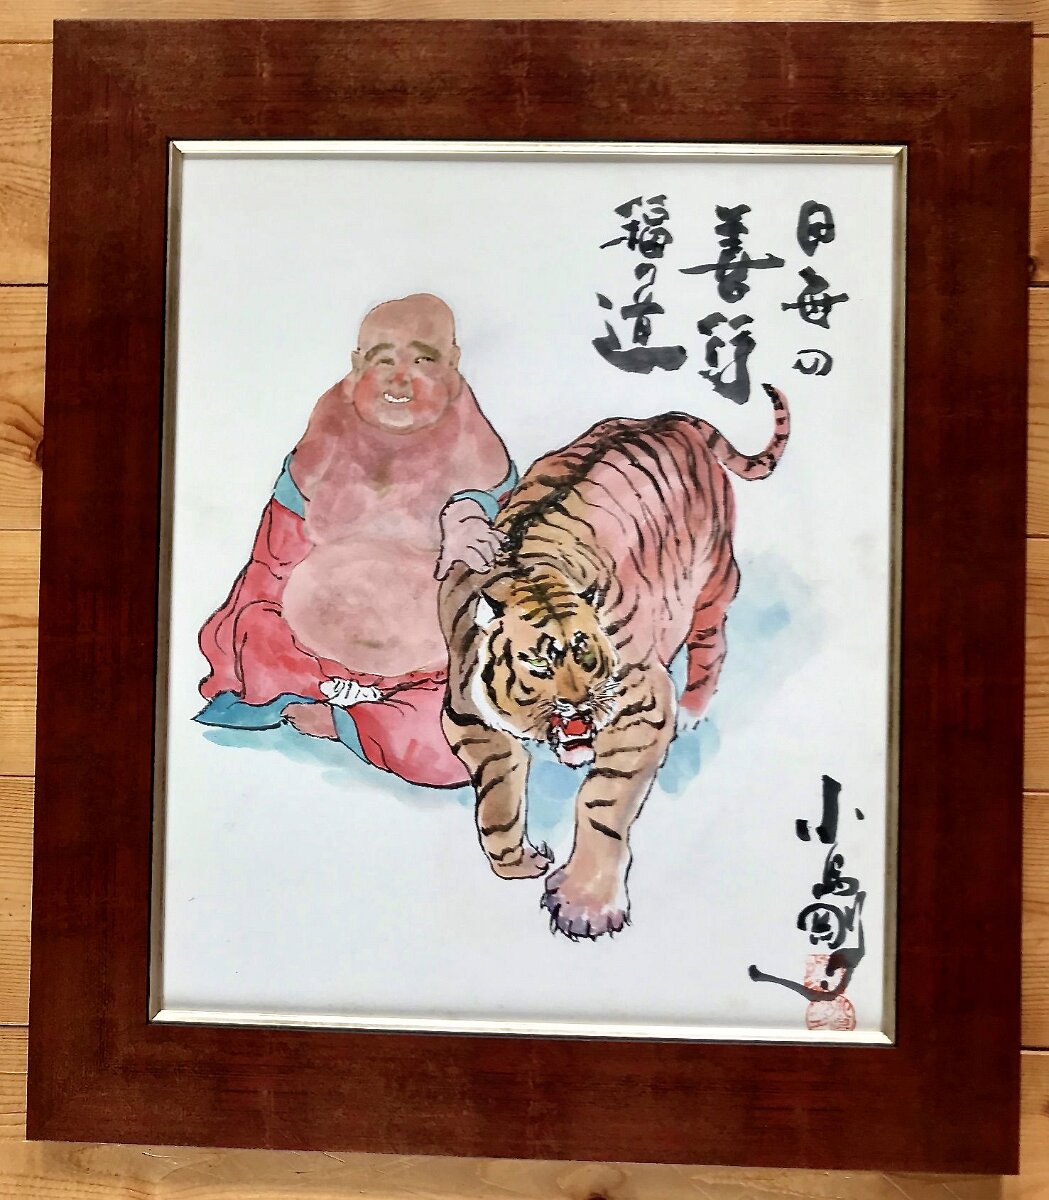 日毎の
善行
福の道
小島剛夕